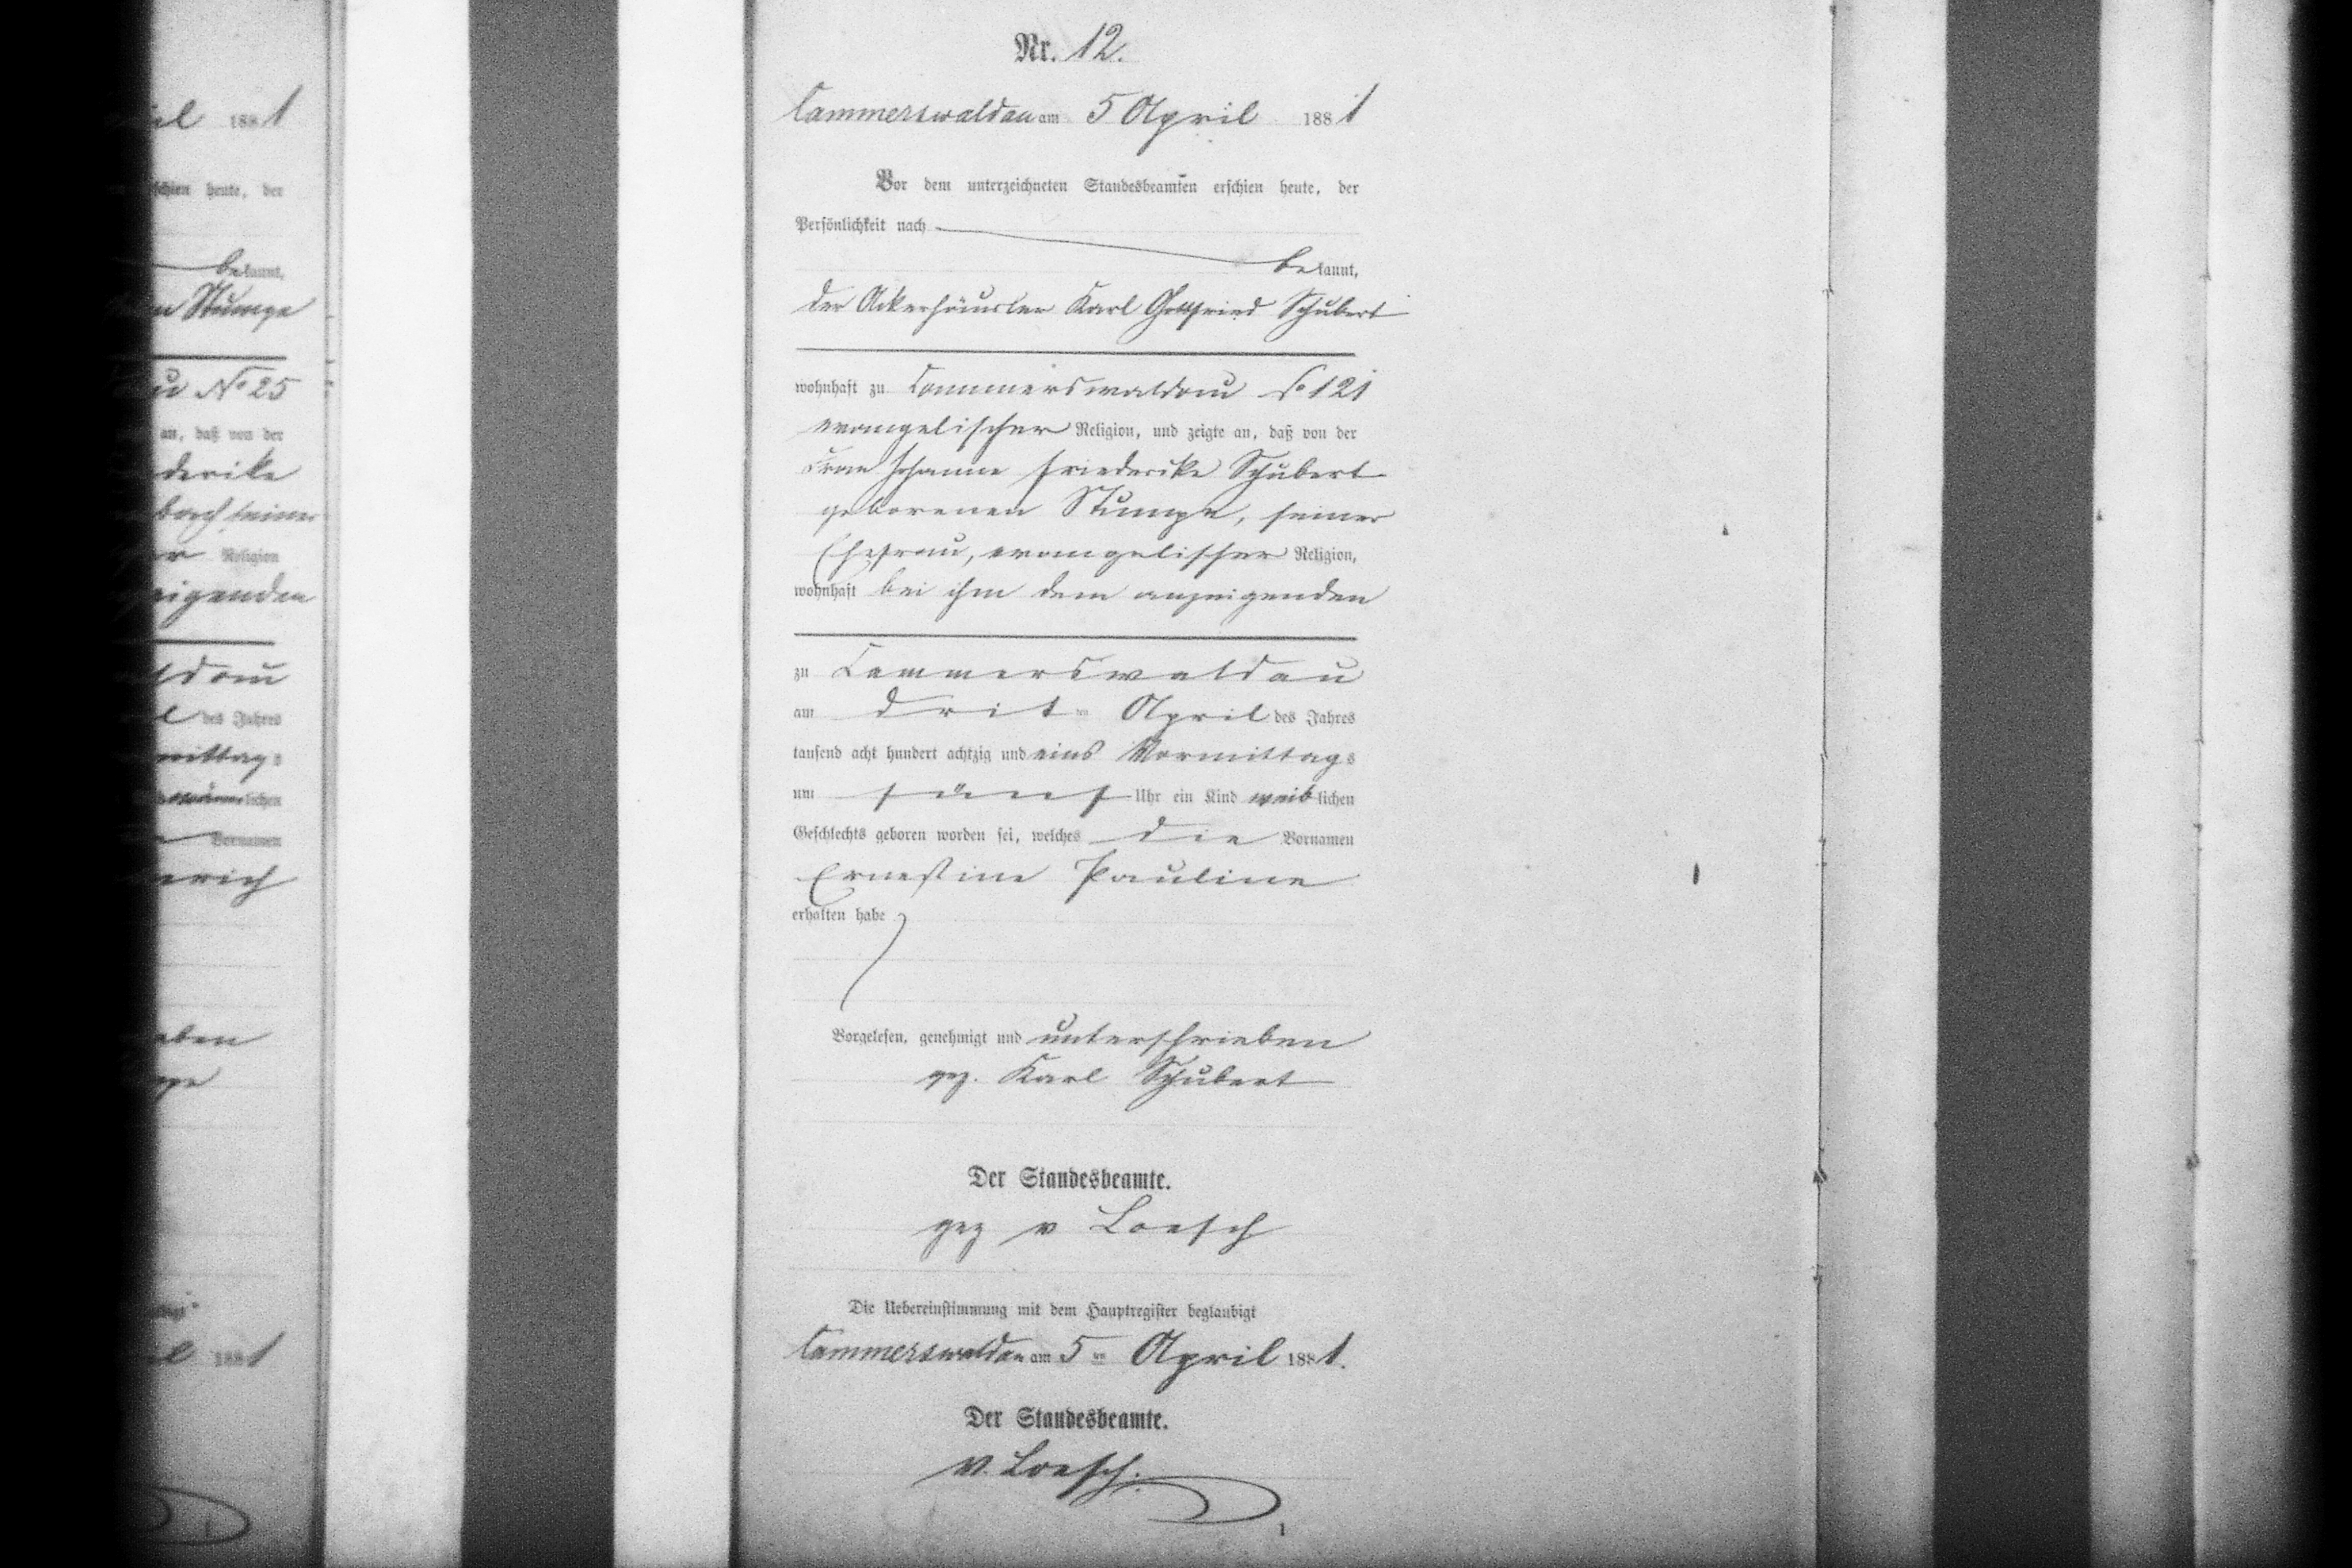 il 1881
schien heute, der
bekannt,
Stumpe
No 25
an, daß von der
derike
Religion
eigenden
ldau
l des Jahres
mittags
lichen
Vornamen
erich
aben
l 1881
Nr. 12.
Cammerswaldau am 5 April 1881
Vor dem unterzeichneten Standesbeamten erschien heute, der
Persönlichkeit nach
bekannt,
der Ackerhäusler Karl Gottfried Schubert
wohnhaft zu Cammerswaldau No 121
evangelischer Religion, und zeigte an, daß von der
Frau Johanne Friederike Schubert
geborenen Stumpe, seiner
Ehefrau, evangelischer Religion,
wohnhaft bei ihm dem anzeigenden
zu Cammerswaldau
am dritten April des Jahres
tausend acht hundert achtzig und eins Vormittags
um fünf Uhr ein Kind weiblichen
Geschlechts geboren worden sei, welches die Vornamen
Ernestine Pauline
erhalten habe
Vorgelesen, genehmigt und unterschrieben
gez. Karl Schubert
Der Standesbeamte.
gez v Loesch
Die Uebereinstimmung mit dem Hauptregister beglaubigt
Cammerswaldau am 5ten April 1881.
Der Standesbeamte.
v. Loesch.
1